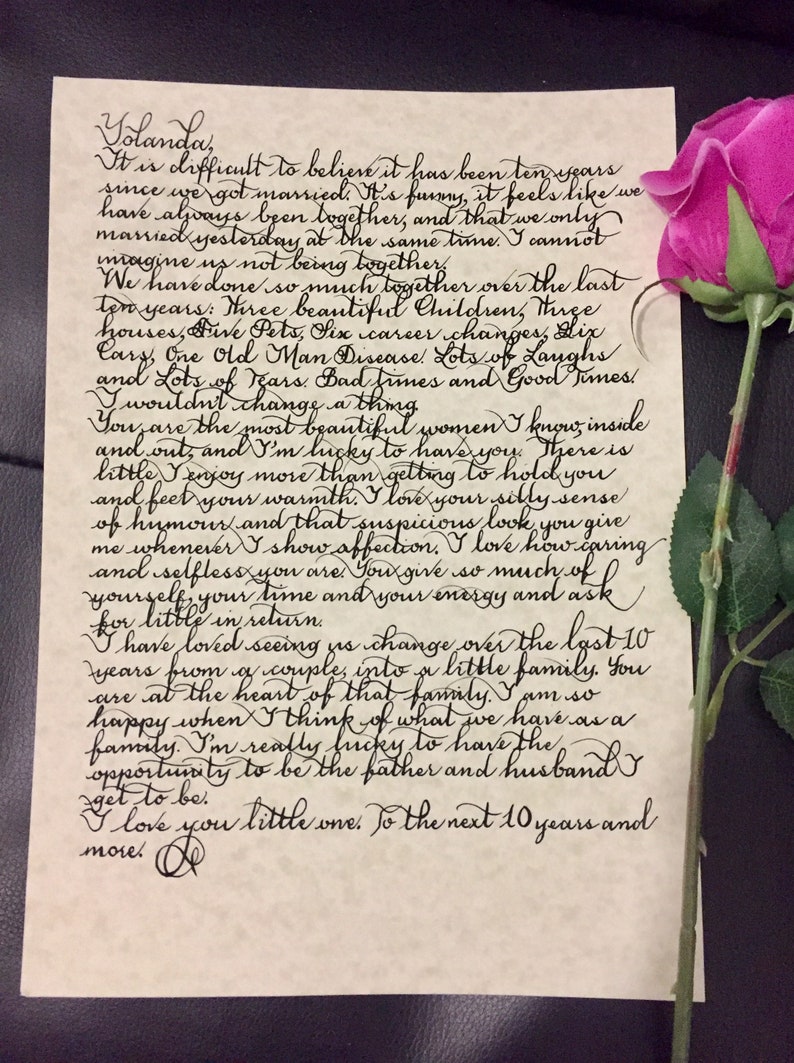 Yolanda,
It is difficult to believe it has been ten years
since we got married. It's funny, it feels like we
have always been together, and that we only
married yesterday at the same time. I cannot
imagine us not being together.
We have done so much together over the last
ten years: Three beautiful Children, Three
houses, Five Pets, Six career changes, Six
Cars, One Old Man Disease. Lots of Laughs
and Lots of Tears. Bad times and Good Times.
I wouldn't change a thing.
You are the most beautiful women I know, inside
and out, and I'm lucky to have you. There is
little I enjoy more than getting to hold you
and feel your warmth. I love your silly sense
of humour and that suspicious look you give
me whenever I show affection. I love how caring
and selfless you are. You give so much of
yourself, your time and your energy and ask
for little in return.
I have loved seeing us change over the last 10
years from a couple, into a little family. You
are at the heart of that family. I am so
happy when I think of what we have as a
family. I'm really lucky to have the
opportunity to be the father and husband I
get to be.
I love you little one. To the next 10 years and
more.